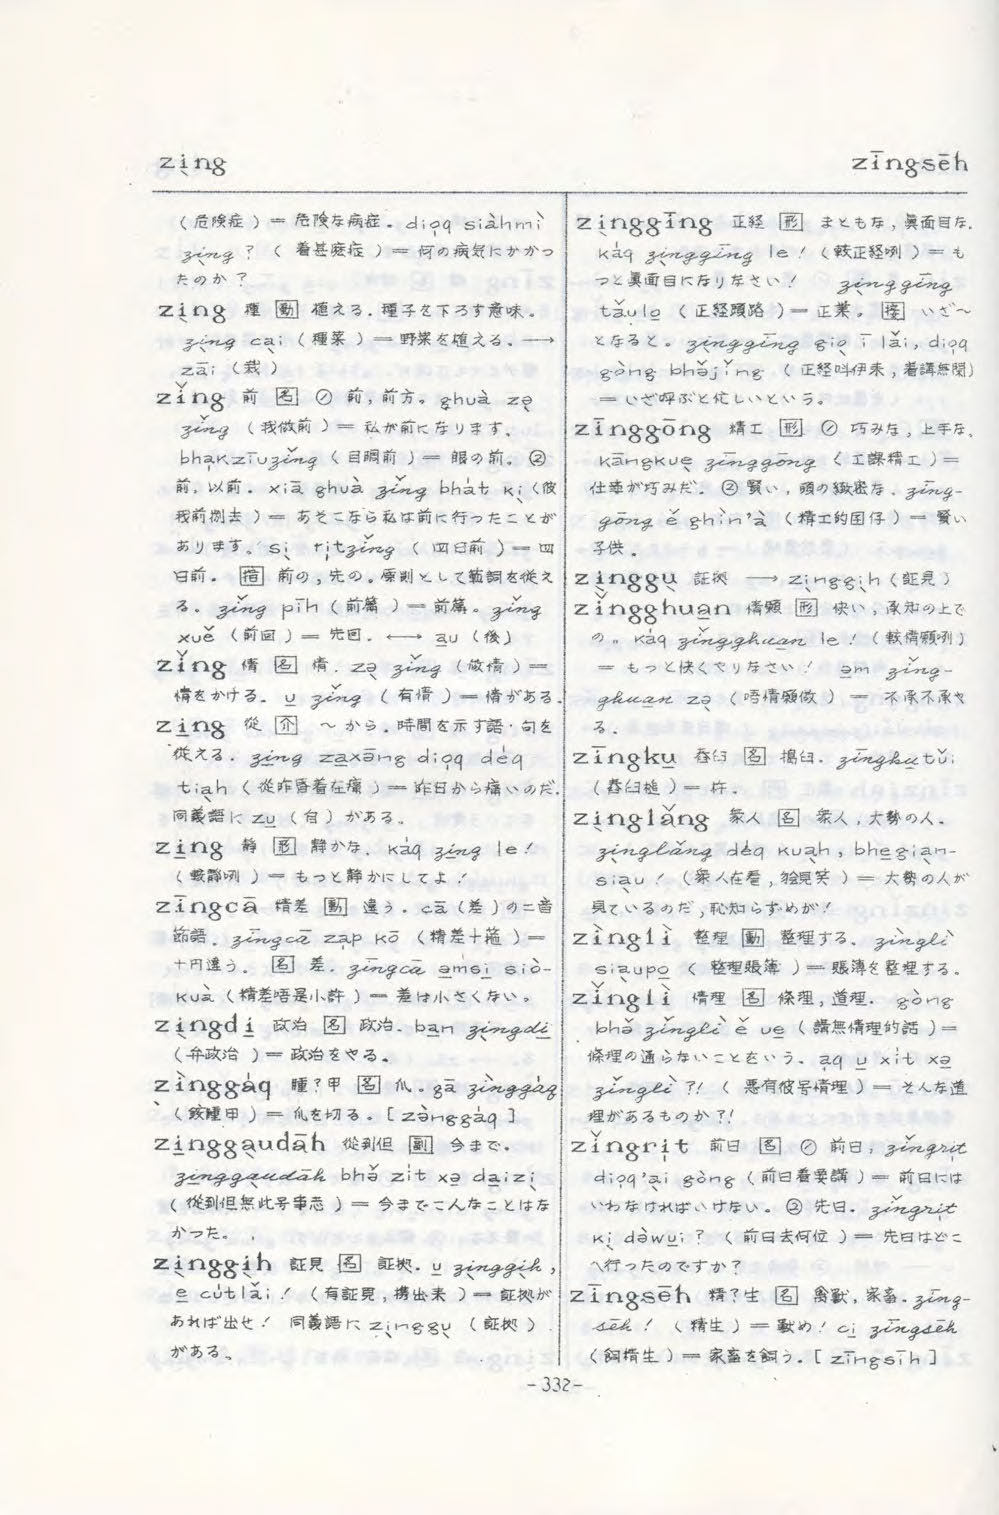 zi̖ng
zīngsēh
(危険症)＝危険な病症. dio̖q siàhmì
zi̖ng ? (着甚麽症)＝何の病気にかかっ
たのか?
zi̖ng 種 [動] 植える. 種子を下ろす意味。
zi̖ng ca̖i (種菜)＝野菜を植える. ⟶
zāi (栽)
zǐng 前 [名] ① 前, 前方。ghuà zə̖
zǐng (我做前)＝私が前になります.
bha̖kzīuzǐng (目睭前)＝眼の前. ②
前, 以前. xiā ghuà zǐng bhát ki̖ (彼
我前捌去)＝あそこなら私は前に行ったことが
あります. si̖ ri̖tzǐng (四日前)＝四
日前. [指] 前の, 先の。原則として数詞を従え
る. zǐng pīh (前篇)＝前篇。zǐng
xuě (前回)＝先回. ⟷ a̲u (後)
zǐng 情 [名] 情. zə̖ zǐng (做情)＝
情をかける. u̲ zǐng (有情)＝情がある.
zi̲ng 從 [介] ～から. 時間を示す語·句を
從える. zi̲ng za̲xəng dio̖q déq
tia̖h (從昨昏着在痛)＝昨日から痛いのだ.
同義語に zu̲ (自) がある.
zi̲ng 静 [形] 静かな. káq zi̲ng le!
(較静咧)＝もっと静かにしてよ!
zīngcā 精差 [動] 違う. cā (差) の二音
節語. zīngcā za̖p kō (精差十箍)＝
十円違う. [名] 差. zīngcā ə̲msi̲ siò-
kuà (精差唔是小許)＝差は小さくない。
zi̖ngdi̲ 政治 [名] 政治. ba̲n zi̖ngdi̲
(弁政治)＝政治をやる.
zìnggáq 腫?甲 [名] 爪. gā zìnggáq
(鉸腫甲)＝爪を切る. [zə̀nggáq]
zi̲ngga̖udāh 從到但 [副] 今まで.
zi̲ngga̖udāh bhə̌ zít xə̲ da̲izi̖
(從到但無此号事志)＝今までこんなことはな
かった.
zi̖nggi̖h 証見 [名] 証拠. u̲ zi̖nggi̖h,
e̲ cútlǎi! (有証見, 携出来)＝証拠が
あれば出せ! 同義語に zi̖nggu̖ (証拠)
がある.
zi̖nggīng 正経 [形] まともな, 眞面目な.
káq zi̖nggīng le! (較正経咧)＝も
っと眞面目になりなさい! zi̖nggīng
tǎulo̲ (正経頭路)＝正業. [接] いざ～
となると。zi̖nggīng gio̖ ī lǎi, dio̖q
gòng bhə̌jǐng (正経叫伊来, 着講無閑)
＝いざ呼ぶと忙しいという。
zīnggōng 精工 [形] ① 巧みな, 上手な.
kāngkue̖ zīnggōng (工課精工)＝
仕事が巧みだ. ② 賢い, 頭の緻密な. zīng-
gōng ě ghìn'à (精工的囝仔)＝賢い
子供.
zi̖nggu̖ 証拠 ⟶ zi̖nggi̖h (証見)
zǐngghua̲n 情願 [形] 快い, 承知の上で
の. káq zǐngghua̲n le! (較情願咧)
＝もっと快くやりなさい! ə̲m zǐng-
ghua̲n zə̖ (唔情願做)＝不承不承や
る.
zīngku̲ 舂臼 [名] 搗臼. zīngku̲tǔi
(舂臼槌)＝杵.
zi̖nglǎng 衆人 [名] 衆人, 大勢の人.
zi̖nglǎng déq kua̖h, bhe̲gia̖n-
sia̖u! (衆人在看, 𣍐見笑)＝大勢の人が
見ているのだ, 恥知らずめが!
zìnglì 整理 [動] 整理する. zìnglì
sia̖upo̲ (整理賬簿)＝賬簿を整理する.
zǐnglì 情理 [名] 條理, 道理. gòng
bhə̌ zǐnglì ě ue̲ (講無情理的話)＝
條理の通らないことをいう. a̖q u̲ xít xə̲
zǐnglì ?! (悪有彼号情理)＝そんな道
理があるものか?!
zǐngri̖t 前日 [名] ① 前日. zǐngri̖t
dio̖q'a̖i gòng (前日着要講)＝前日には
いわなければいけない。② 先日. zǐngri̖t
ki̖ dəwu̲i? (前日去何位)＝先日はどこ
へ行ったのですか?
zīngsēh 精?生 [名] 禽獣, 家畜. zīng-
sēh! (精生)＝獣め! ci̲ zīngsēh
(飼精生)＝家畜を飼う. [zīngsīh]
-332-